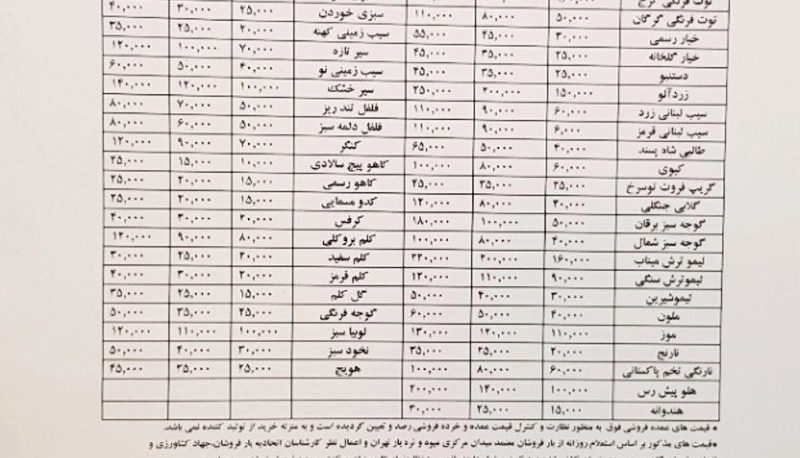 توت فرنگی کرج
توت فرنگی گرگان ۵۰,۰۰۰ ۸۰,۰۰۰ ۱۱۰,۰۰۰ سبزی خوردن ۲۵,۰۰۰ ۳۰,۰۰۰ ۴۰,۰۰۰
خیار رسمی ۳۰,۰۰۰ ۴۵,۰۰۰ ۵۵,۰۰۰ سیب زمینی کهنه ۲۰,۰۰۰ ۲۵,۰۰۰ ۳۵,۰۰۰
خیار گلخانه ۲۵,۰۰۰ ۳۵,۰۰۰ ۴۵,۰۰۰ سیر تازه ۷۰,۰۰۰ ۱۰۰,۰۰۰ ۱۲۰,۰۰۰
دستنبو ۲۵,۰۰۰ ۳۵,۰۰۰ ۴۵,۰۰۰ سیب زمینی نو ۴۰,۰۰۰ ۵۰,۰۰۰ ۶۰,۰۰۰
زردآلو ۱۵۰,۰۰۰ ۲۰۰,۰۰۰ ۲۵۰,۰۰۰ سیر خشک ۱۰۰,۰۰۰ ۱۲۰,۰۰۰ ۱۴۰,۰۰۰
سیب لبنانی زرد ۶۰,۰۰۰ ۹۰,۰۰۰ ۱۱۰,۰۰۰ فلفل تند ریز ۵۰,۰۰۰ ۷۰,۰۰۰ ۸۰,۰۰۰
سیب لبنانی قرمز ۶,۰۰۰ ۹۰,۰۰۰ ۱۱۰,۰۰۰ فلفل دلمه سبز ۵۰,۰۰۰ ۶۰,۰۰۰ ۸۰,۰۰۰
طالبی شاه پسند ۴۰,۰۰۰ ۵۰,۰۰۰ ۶۵,۰۰۰ کنگر ۷۰,۰۰۰ ۹۰,۰۰۰ ۱۲۰,۰۰۰
کیوی ۶۰,۰۰۰ ۸۰,۰۰۰ ۱۰۰,۰۰۰ کاهو پیچ سالادی ۱۰,۰۰۰ ۱۵,۰۰۰ ۲۵,۰۰۰
گریپ فروت توسرخ ۲۵,۰۰۰ ۳۵,۰۰۰ ۴۵,۰۰۰ کاهو رسمی ۱۵,۰۰۰ ۲۰,۰۰۰ ۲۵,۰۰۰
گلابی جنگلی ۳۰,۰۰۰ ۸۰,۰۰۰ ۱۲۰,۰۰۰ کدو مسمایی ۱۵,۰۰۰ ۲۰,۰۰۰ ۲۵,۰۰۰
گوجه سبز برقان ۵۰,۰۰۰ ۱۰۰,۰۰۰ ۱۸۰,۰۰۰ کرفس ۲۰,۰۰۰ ۳۰,۰۰۰ ۴۰,۰۰۰
گوجه سبز شمال ۴۰,۰۰۰ ۸۰,۰۰۰ ۱۰۰,۰۰۰ کلم بروکلی ۸۰,۰۰۰ ۹۰,۰۰۰ ۱۲۰,۰۰۰
لیمو ترش میناب ۱۶۰,۰۰۰ ۲۰۰,۰۰۰ ۲۲۰,۰۰۰ کلم سفید ۲۰,۰۰۰ ۲۵,۰۰۰ ۳۰,۰۰۰
لیموترش سنگی ۹۰,۰۰۰ ۱۱۰,۰۰۰ ۱۲۰,۰۰۰ کلم قرمز ۲۰,۰۰۰ ۳۰,۰۰۰ ۴۰,۰۰۰
لیموشیرین ۳۰,۰۰۰ ۴۰,۰۰۰ ۵۰,۰۰۰ گل کلم ۱۵,۰۰۰ ۲۵,۰۰۰ ۳۵,۰۰۰
ملون ۴۰,۰۰۰ ۵۰,۰۰۰ ۶۰,۰۰۰ گوجه فرنگی ۲۵,۰۰۰ ۳۵,۰۰۰ ۵۰,۰۰۰
موز ۱۱۰,۰۰۰ ۱۲۰,۰۰۰ ۱۳۰,۰۰۰ لوبیا سبز ۱۰۰,۰۰۰ ۱۱۰,۰۰۰ ۱۲۰,۰۰۰
نارنج ۲۰,۰۰۰ ۲۵,۰۰۰ ۳۵,۰۰۰ نخود سبز ۳۰,۰۰۰ ۴۰,۰۰۰ ۵۰,۰۰۰
نارنگی تخم پاکستانی ۶۰,۰۰۰ ۸۰,۰۰۰ ۱۰۰,۰۰۰ هویج ۲۵,۰۰۰ ۳۵,۰۰۰ ۴۵,۰۰۰
هلو پیش رس ۱۰۰,۰۰۰ ۱۴۰,۰۰۰ ۲۰۰,۰۰۰
هندوانه ۱۵,۰۰۰ ۲۵,۰۰۰ ۳۰,۰۰۰
* قیمت های عمده فروشی فوق به منظور نظارت و کنترل قیمت عمده و خرده فروشی رصد و تعیین گردیده است و به منزله خرید از تولید کننده نمی باشد.
*قیمت های مذکور بر اساس استعلام روزانه از بار فروشان معتمد میدان مرکزی میوه و تره بار تهران و اعمال نظر کارشناسان اتحادیه بار فروشان،جهاد کشاورزی و